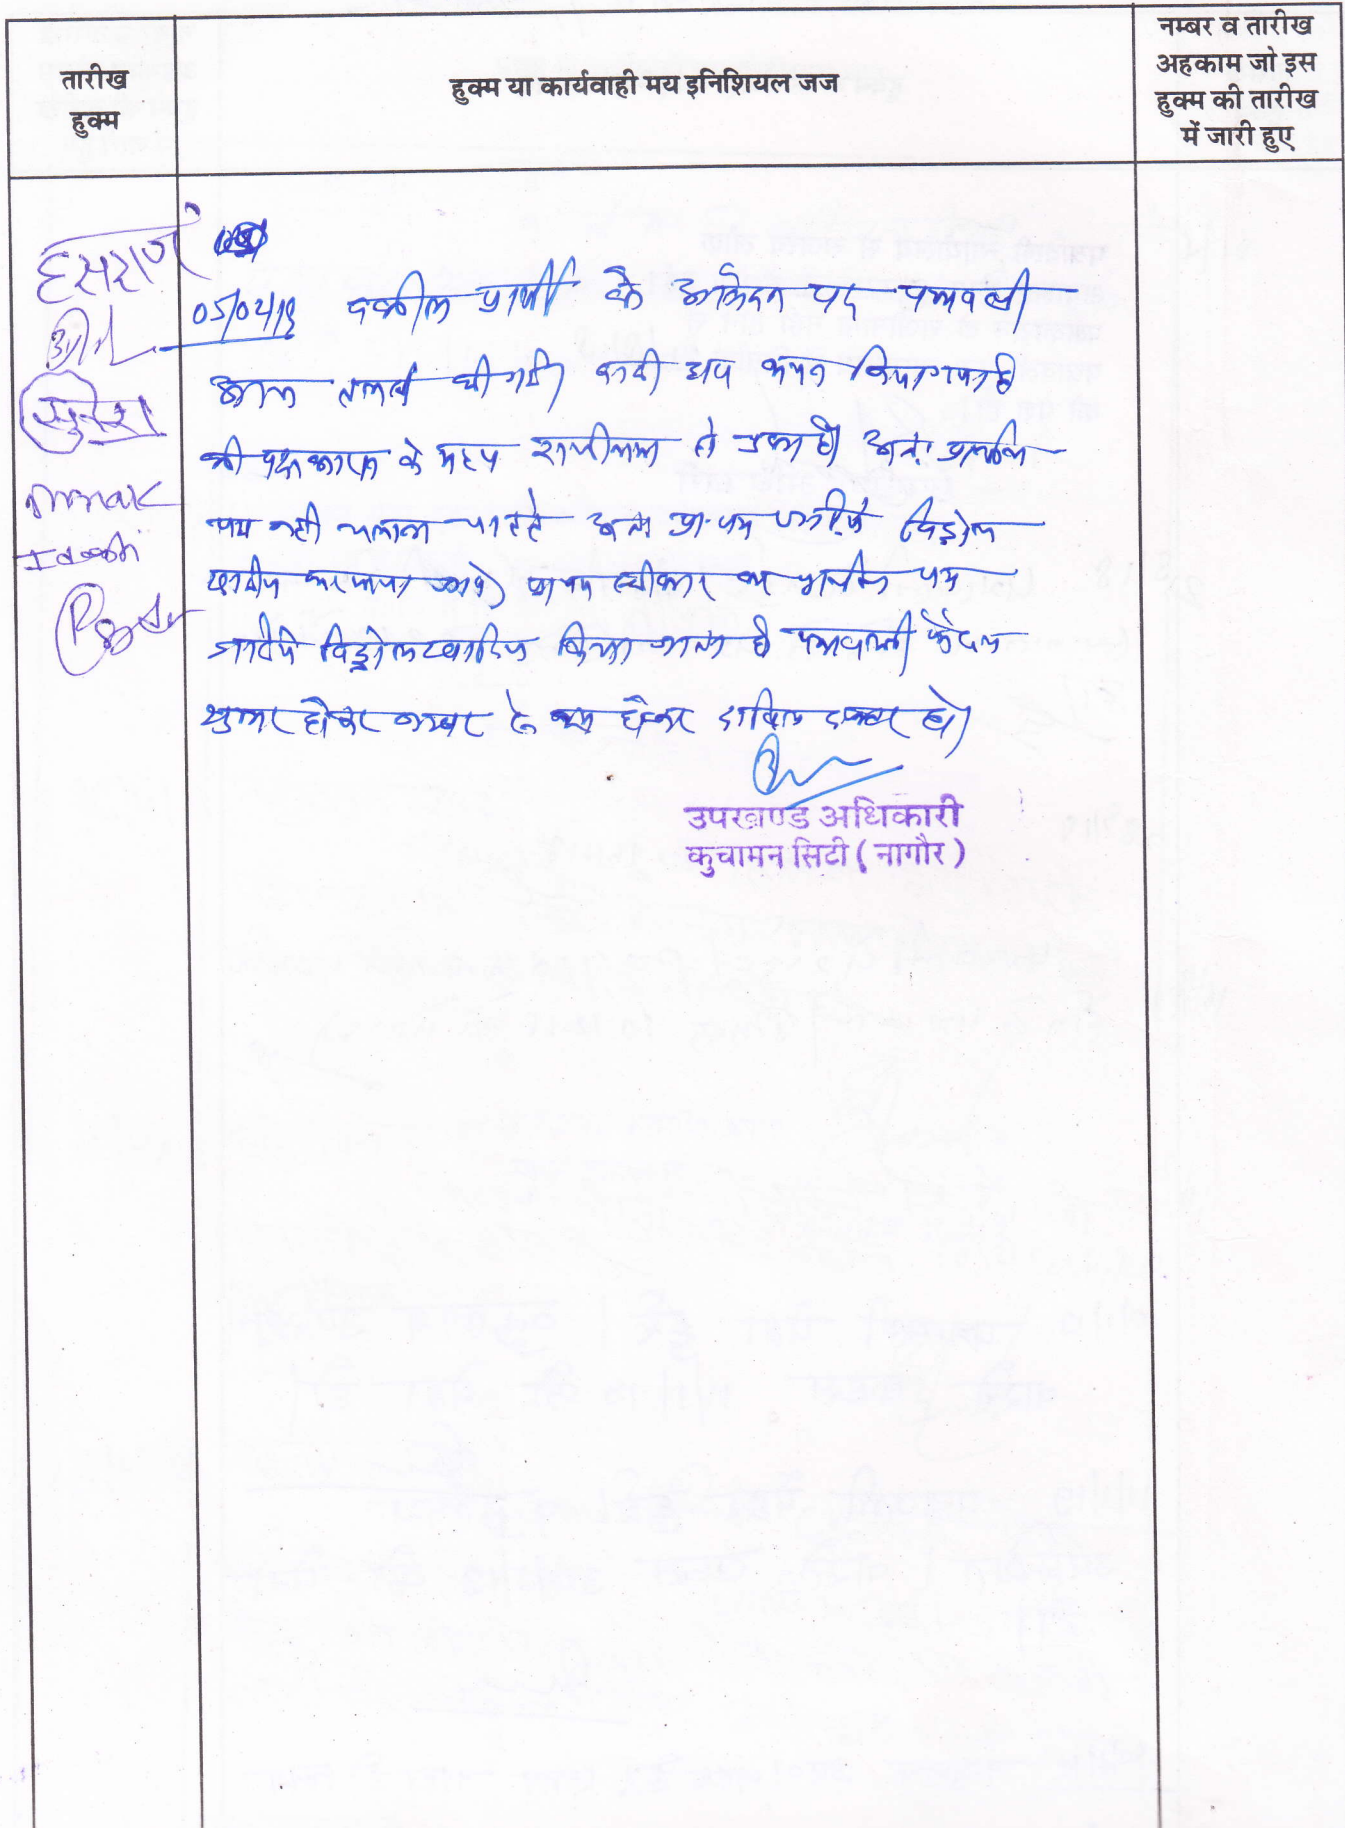 तारीख
हुक्म
हुक्म या कार्यवाही मय इनिशियल जज
नम्बर व तारीख
अहकाम जो इस
हुक्म की तारीख
में जारी हुए
हंसराज
सुरेश
05/02/19 वकील प्रार्थी के आवेदन पर पत्रावली
आज तलब की गयी। वादी द्वारा कथन किया गया है
की पक्षकारान के मध्य राजीनामा हो चुका है। अतः प्रार्थना
पत्र नही चलाना चाहते अतः प्रा. पत्र विड्रोल
खारीज फरमाया जावे। स्वीकार कर प्रार्थना पत्र
विड्रोल खारिज किया जाता है पत्रावली फैसल
शुमार होकर नम्बर से कम होकर दाखिल दफ्तर हो।
उपखण्ड अधिकारी
कुचामन सिटी (नागौर)